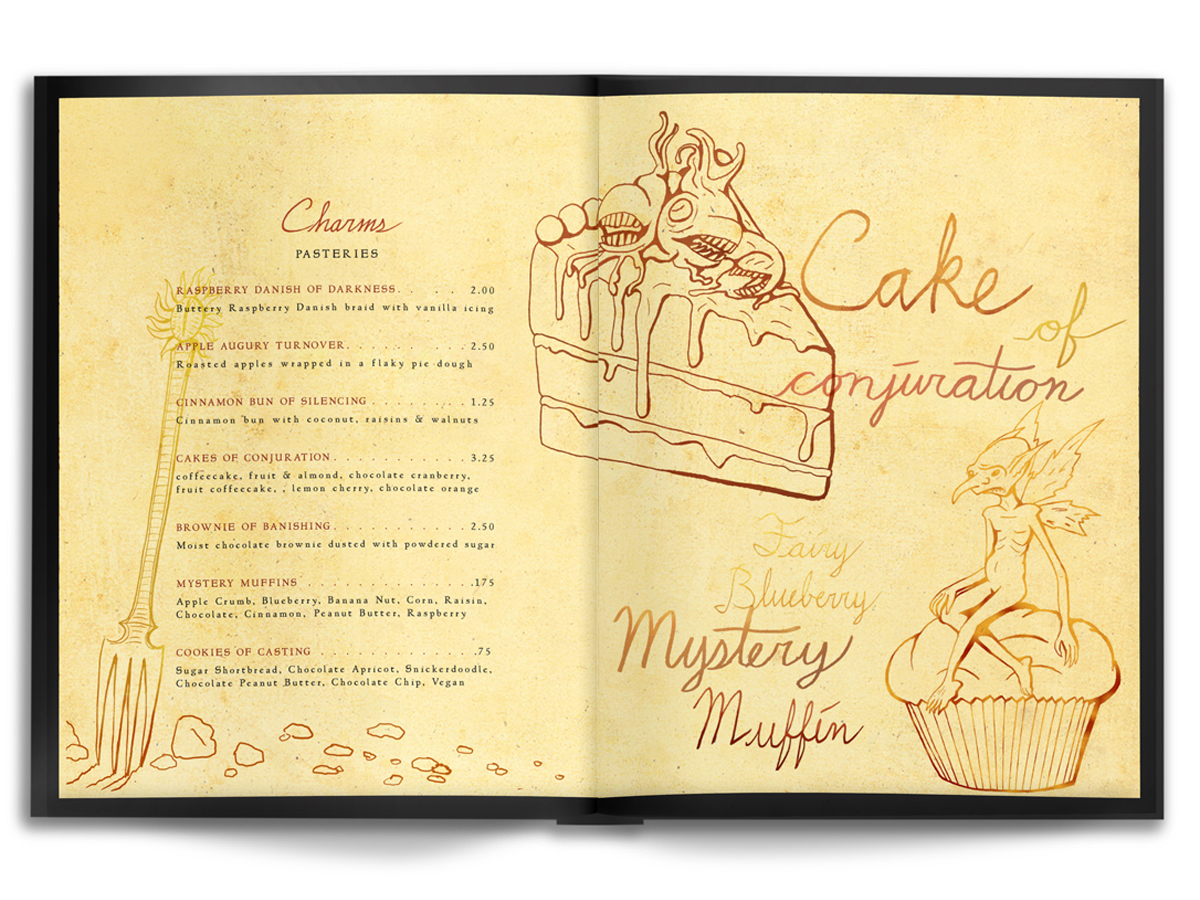 Charms
PASTERIES
RASPBERRY DANISH OF DARKNESS. . . . . 2.00
Buttery Raspberry Danish braid with vanilla icing
APPLE AUGURY TURNOVER. . . . . . . . . 2.50
Roasted apples wrapped in a flaky pie dough
CINNAMON BUN OF SILENCING . . . . . . . 1.25
Cinnamon bun with coconut, raisins & walnuts
CAKES OF CONJURATION . . . . . . . . . . 3.25
coffeecake, fruit & almond, chocolate cranberry,
fruit coffeecake, , lemon cherry, chocolate orange
BROWNIE OF BANISHING. . . . . . . . . . 2.50
Moist chocolate brownie dusted with powdered sugar
MYSTERY MUFFINS . . . . . . . . . . . . .175
Apple Crumb, Blueberry, Banana Nut, Corn, Raisin,
Chocolate, Cinnamon, Peanut Butter, Raspberry
COOKIES OF CASTING . . . . . . . . . . . .75
Sugar Shortbread, Chocolate Apricot, Snickerdoodle,
Chocolate Peanut Butter, Chocolate Chip, Vegan
Cake
of
conjuration
Fairy
Blueberry
Mystery
Muffin